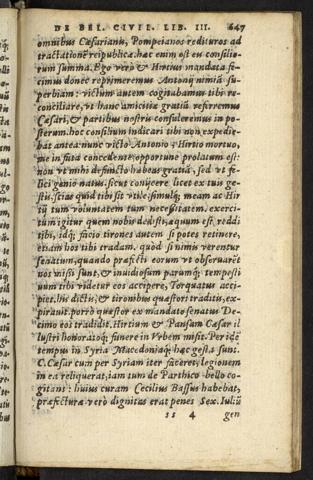 DE BEL. CIVIL. LIB. III. 647
omnibus Cæsarianis, Pompeianos redituros ad
tractationē reipublicæ. hac enim est eu consilio-
rum summa. Ego verò & Hirtius mandata fe-
cimus donec reprimeremus Antonij nimiā su-
perbiam: victum autem cogitabamus tibi re-
conciliare, vt hanc amicitiæ gratiā referremus
Cæsari, & partibus nostris consuleremus in po-
sterum. hoc consilium indicari tibi non expedie-
bat antea: nunc victo Antonio, Hirtio mortuo,
me in fata concedente, opportune prolatum est:
non vt mihi defuncto habeas gratiā, sed vt fe-
lici genio natus. sicut conijcere licet ex tuis ge-
stis: scias quid tibi sit vtile: simulq́; meam ac Hir
tij tum voluntatem tum necessitatem. exerci-
tum igitur quem nobis dedisti, æquum est reddi
tibi, idq́; facio tirones autem si potes retinere,
etiam hos tibi tradam. quòd si nimis verentur
senatum, quando præfecti eorum vt obseruarēt
nos missi sunt, & inuidiosum parumq́; tempesti
uum tibi videtur eos accipere, Torquatus acci-
piet. his dictis, & tironibus quæstori traditis, ex-
pirauit. porrò quæstor ex mandato senatus De-
cimo eos tradidit. Hirtium & Pansam Cæsar il
lustri honoratoq́; funere in Vrbem misit. Per idē
tempus in Syria Macedoniaq́; hæc gesta sunt.
C. Cæsar cum per Syriam iter faceret, legionem
in ea reliquerat, iam tum de Parthico bello co-
gitans: huius curam Cecilius Bassus habebat,
præfecturæ verò dignitas erat penes Sex. Iuliū
ss 4 gen